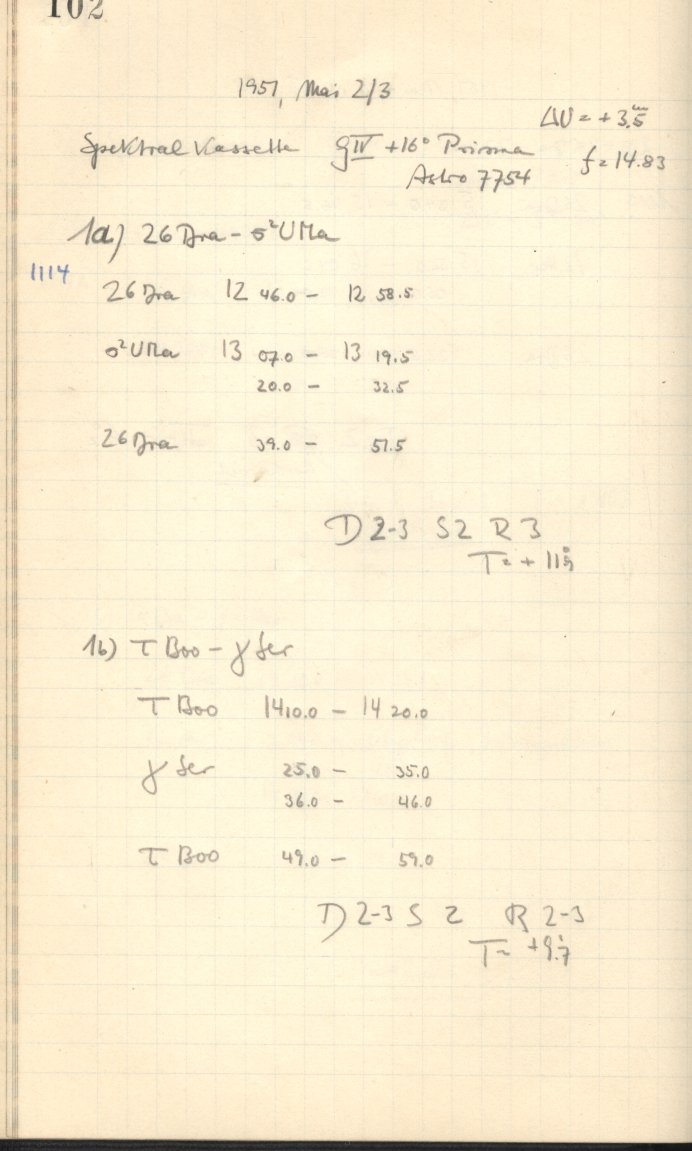 102
1951, Mai 2/3
ΔU = +3.5ᵐ
Spektral Kassette gIV +16° Prisma f = 14.83
Astro 7754
1a) 26 Dra - σ²UMa
1114
26 Dra 12 46.0 - 12 58.5
σ²UMa 13 07.0 - 13 19.5
20.0 - 32.5
26 Dra 39.0 - 51.5
D 2-3 S2 R 3
T = + 11.5°
1b) τ Boo - γ Ser
τ Boo 14 10.0 - 14 20.0
γ Ser 25.0 - 35.0
36.0 - 46.0
τ Boo 49.0 - 59.0
D 2-3 S 2 R 2-3
T = +9.7°